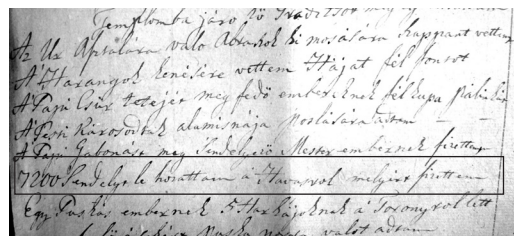 Templomba járó jó
Az Úr Asztalára való Abraszok ki mosására Szappant vettem
A Harangok kenésire vettem Hájat fél fontot
A Papi Csűr tetejét meg fedő embereknek fél kupa pálinka
A Pesti Károsodtak alamisnája adtam
A Papi Gabonást meg Sendelyező Mester embernek fizettem
7200 Sendelyt le horattam a Havasrol melyért fizettem
Egy Puskás embernek Harkájoknek a Toronyrol lett
Puska valót adtam